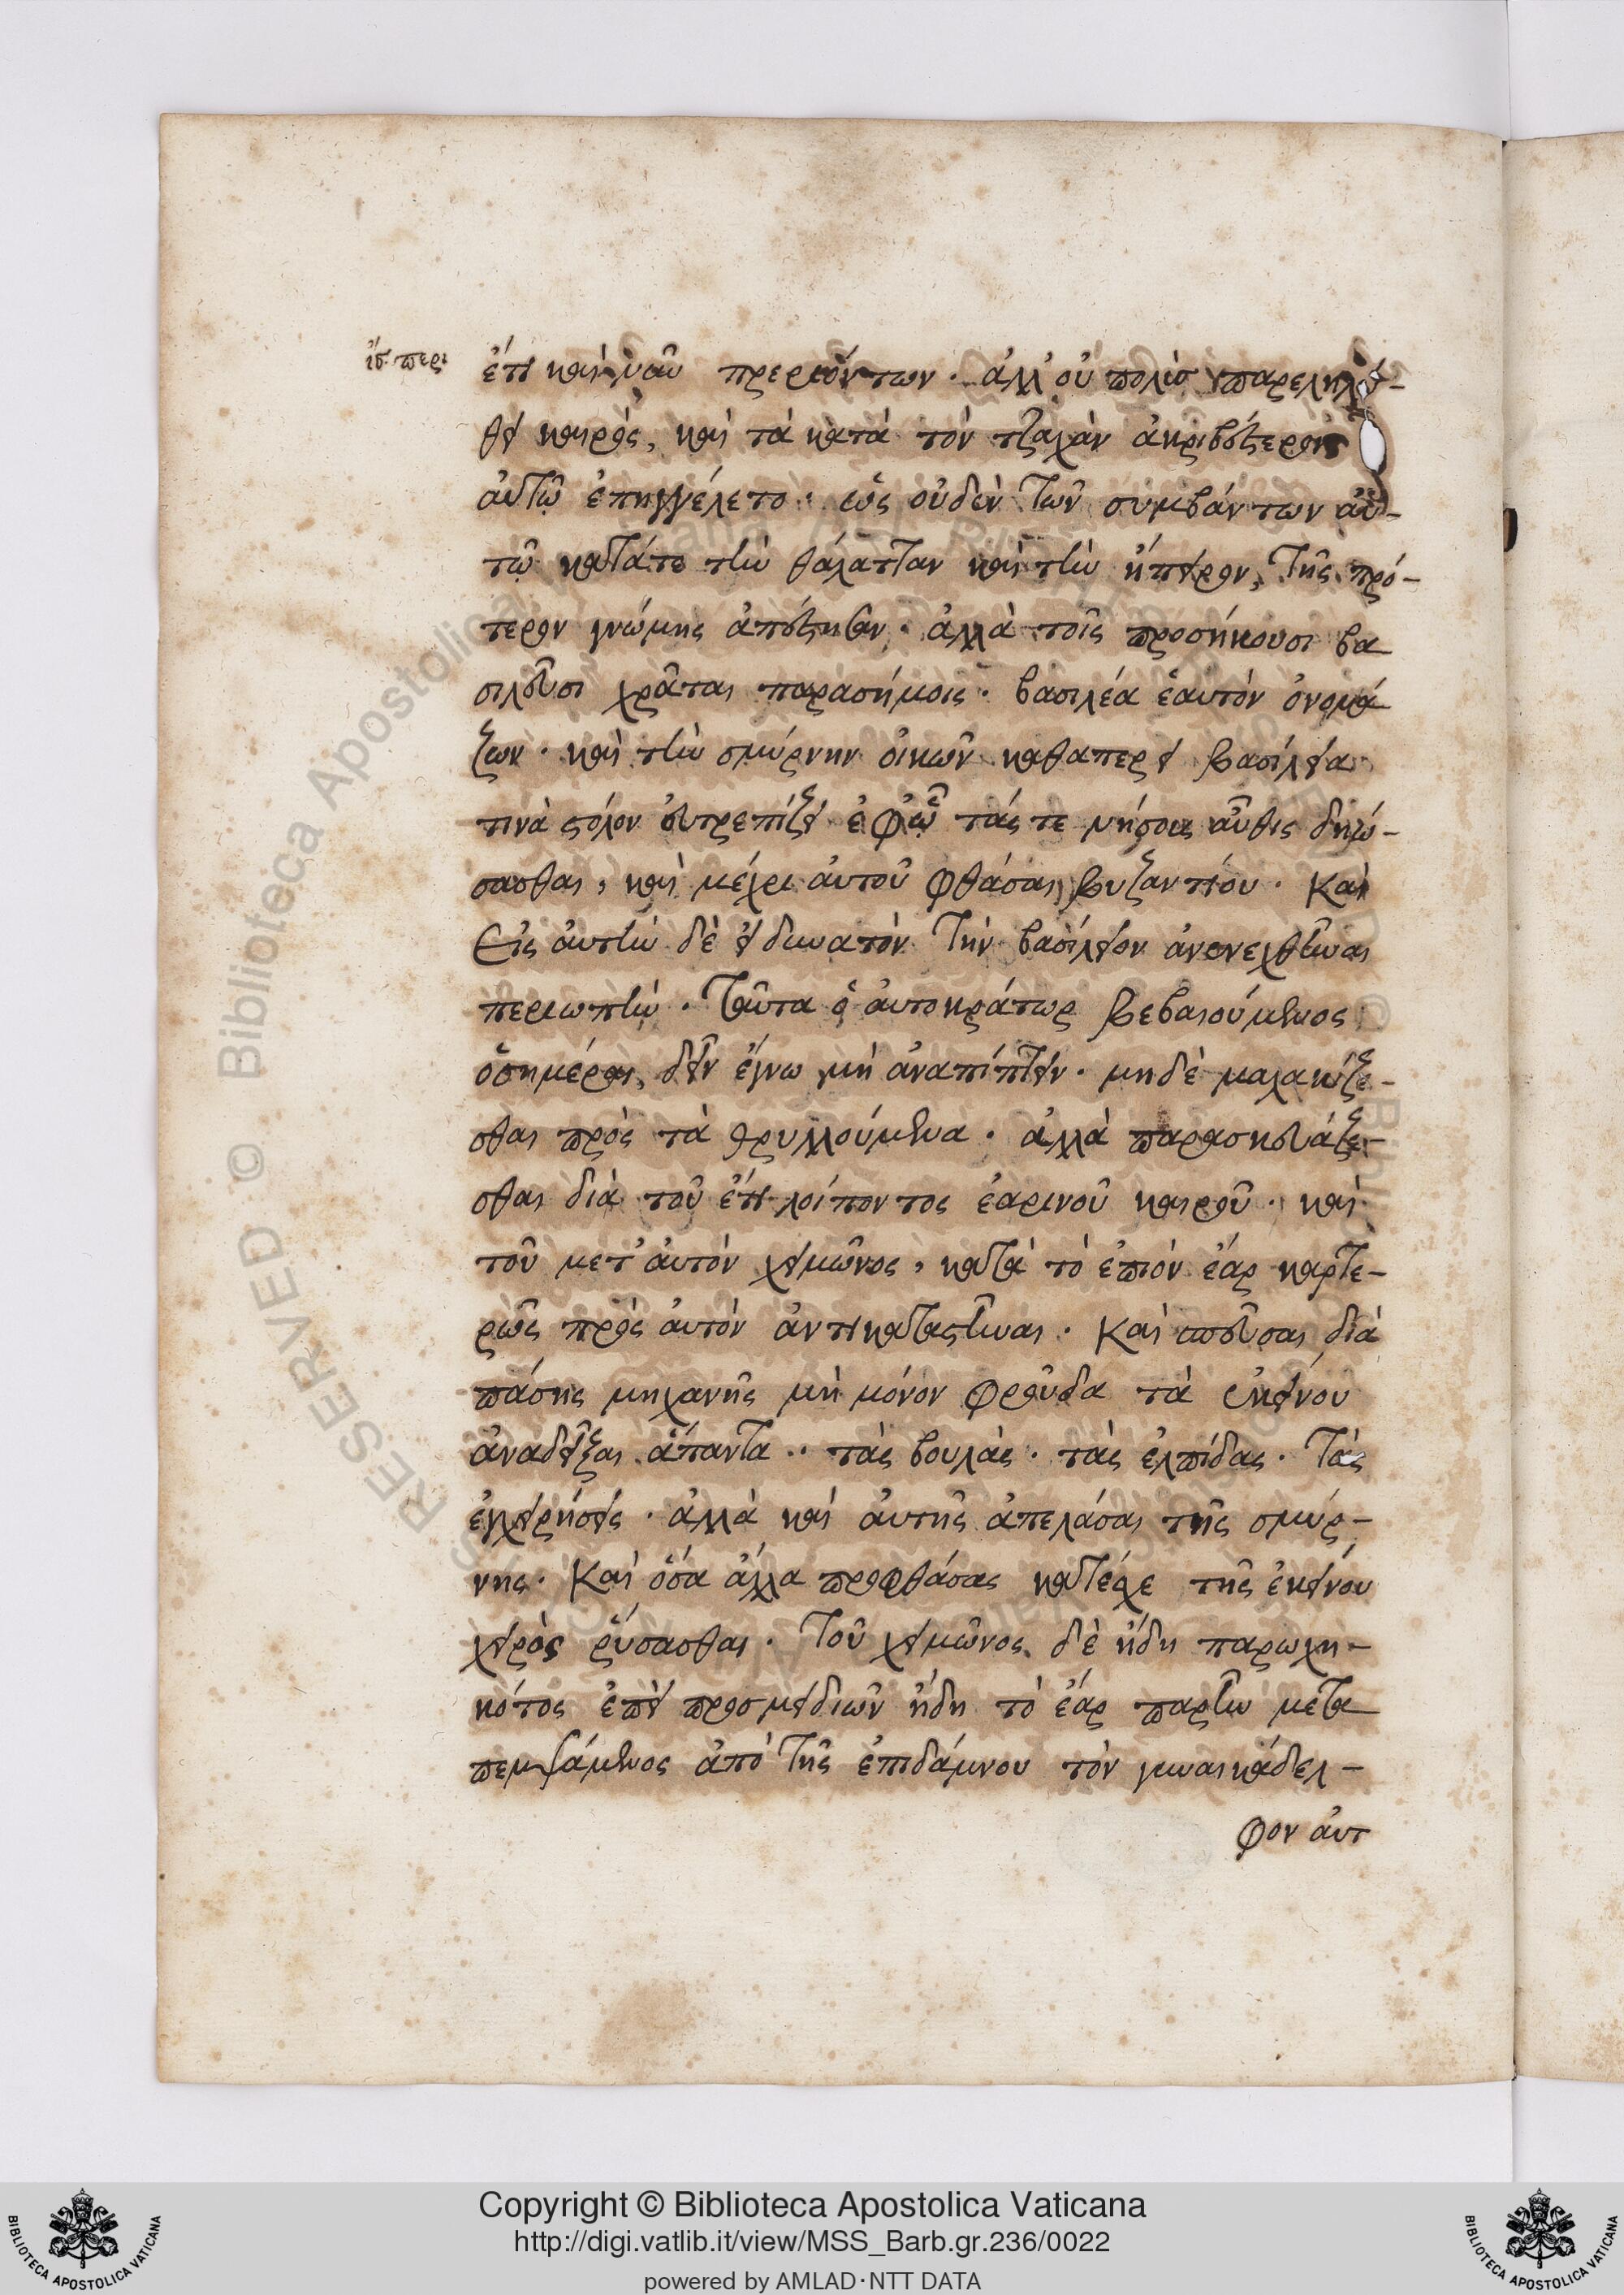 ἔτι καὶ νεῶν περιόντων. ἀλλ' οὐ πολὺς παρεληλύ-
θει καιρὸς, καὶ τὰ κατὰ τὸν τζαχὰν ἀκριβέστερον
αὐτῷ ἐπηγγέλετο. ὡς οὐδὲν τῶν συμβάντων αὐ-
τῷ κατάτε τὴν θάλατταν καὶ τὴν ἤπειρον, τῆς πρό-
τερον γνώμης ἀπέστησαν. ἀλλὰ τοῖς προσήκουσι βα
σιλεῦσι χρᾶται παρασήμοις. βασιλέα ἑαυτὸν ὀνομά
ζων. καὶ τὴν σμύρνην οἰκῶν καθαπερεὶ βασίλεια
τινὰ στόλον εὐτρεπίζει ἐφ' ᾧ τάς τε νήσους αὖθις δηώ-
σασθαι, καὶ μέχρι αὐτοῦ φθάσαι βυζαντίου. Καὶ
Εἰς αὐτὴν δὲ εἰ δυνατὸν τὴν βασίλειον ἀνενεχθῆναι
περιωπὴν. Ταῦτα ὁ αὐτοκράτωρ βεβαιούμενος
ὁσημέραι, δεῖν ἔγνω μὴ ἀναπίπτειν. μηδὲ μαλακίζε-
σθαι πρὸς τὰ θρυλλούμενα. ἀλλὰ παρασκευάζε-
σθαι διὰ τοῦ ἔτι λοίποντος ἐαρινοῦ καιροῦ. καὶ
τοῦ μετ' αὐτὸν χειμῶνος, κατὰ τὸ ἐπιὸν ἔαρ καρτε-
ρῶς πρὸς αὐτὸν ἀντικαταστῆναι. Καὶ σπεῦσαι διὰ
πάσης μηχανῆς μὴ μόνον φροῦδα τὰ ἐκείνου
ἀναδεῖξαι ἅπαντα.. τὰς βουλὰς. τὰς ἐλπίδας. Τὰς
ἐγχειρήσεις. ἀλλὰ καὶ αὐτῆς ἀπελάσαι τῆς σμύρ-
νης. Καὶ ὅσα ἄλλα προφθάσας κατέσχε τῆς ἐκείνου
χειρὸς ῥύσασθαι. Τοῦ χειμῶνος δὲ ἤδη παρωχη-
κότος ἐπεὶ προσμειδιῶν ἤδη τὸ ἔαρ παρῆν μετα
πεμψάμενος ἀπὸ τῆς ἐπιδάμνου τὸν γυναικάδελ-
φον αὐτ